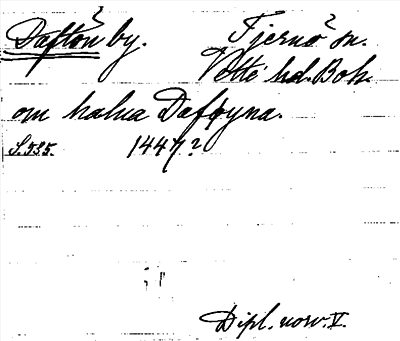 Daftön by. Tjernö sn.
Vette hd. Boh.
om halua Daføyna.
S. 535. 1447?
Dipl. norv. V.